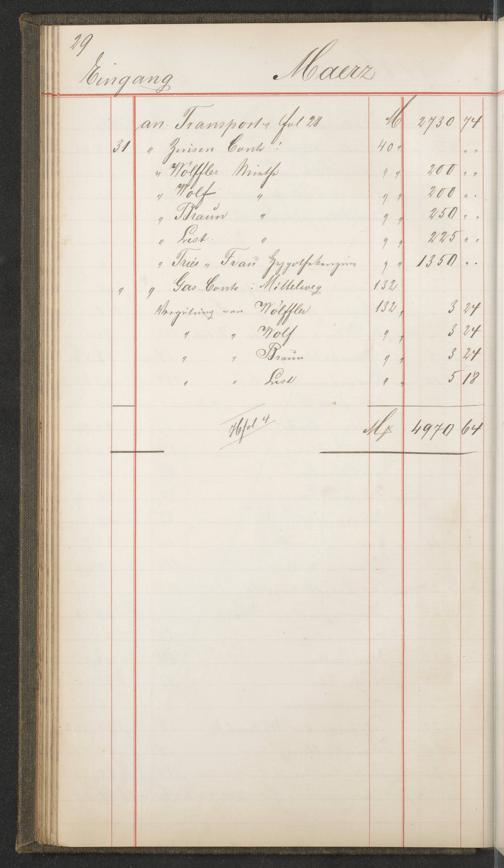 29
Eingang Maerz
an Transport v fol 28 M 2730 74
31 " Zinsen Conto : 40 " " "
" Wölffler Miethe " " 200 " "
" Wolf " " " 200 " "
" Braun " " " 250 " "
" Lust " " " 225 " "
" Tries " Frau Hypothekenzinsen " " 1350 " "
" " Gas-Conto : Mittelweg 132
Vergütung von Wölffler 132 " 3 24
" " Wolf " " 3 24
" " Braun " " 3 24
" " Lust " " 5 18
fol 4 M 4970 64